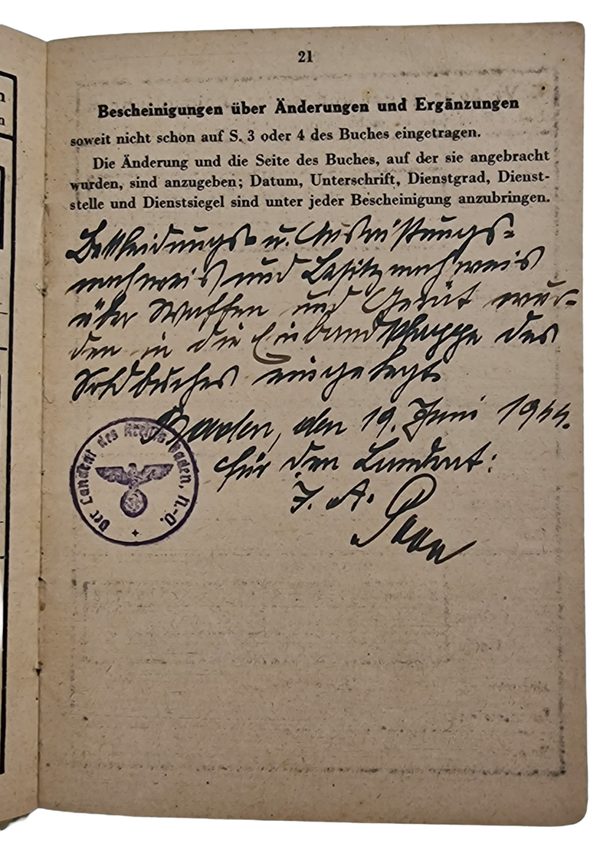 21
Bescheinigungen über Änderungen und Ergänzungen
soweit nicht schon auf S. 3 oder 4 des Buches eingetragen.
Die Änderung und die Seite des Buches, auf der sie angebracht
wurden, sind anzugeben; Datum, Unterschrift, Dienstgrad, Dienst-
stelle und Dienstsiegel sind unter jeder Bescheinigung anzubringen.
Bekleidungs- u. Ausrüstungs-
nachweis und Besitznachweis
über Waffen und Gerät wur-
den in die Einbandklappe des
Soldbuches eingelegt.
Baden, den 19. Juni 1944.
für den Landrat:
I. A.
Der Landrat des Kreises Baden, N.-D.
n
n